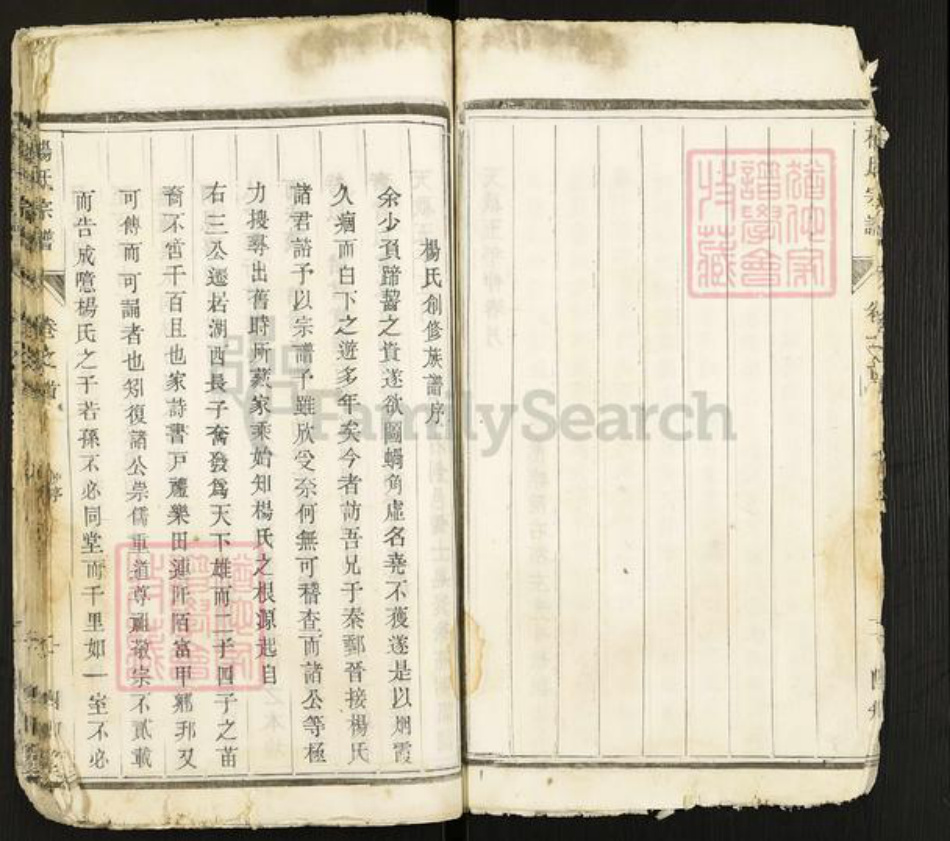 楊氏創修族譜序
余少負蹄齧之資遂欲圖蝸角虛名堯不獲遂是以烟霞
久痼而白下之遊多年矣今者訪吾兄于秦鄠晉接楊氏
諸君諮予以宗譜予雖欣受奈何無可稽查而諸公等極
力搜尋出舊時所藏家乘始知楊氏之根源起自
右三公遷居湖西長子奮發爲天下雄而二子四子之苗
裔不啻千百且也家詩書戸禮樂田連阡陌富甲鄉邦又
可傳而可誦者也矧復諸公崇儒重道尊祖敬宗不貳載
而告成噫楊氏之子若孫不必同堂而千里如一室不必
楊氏宗譜
卷之首
序
FamilySearch
譜學會